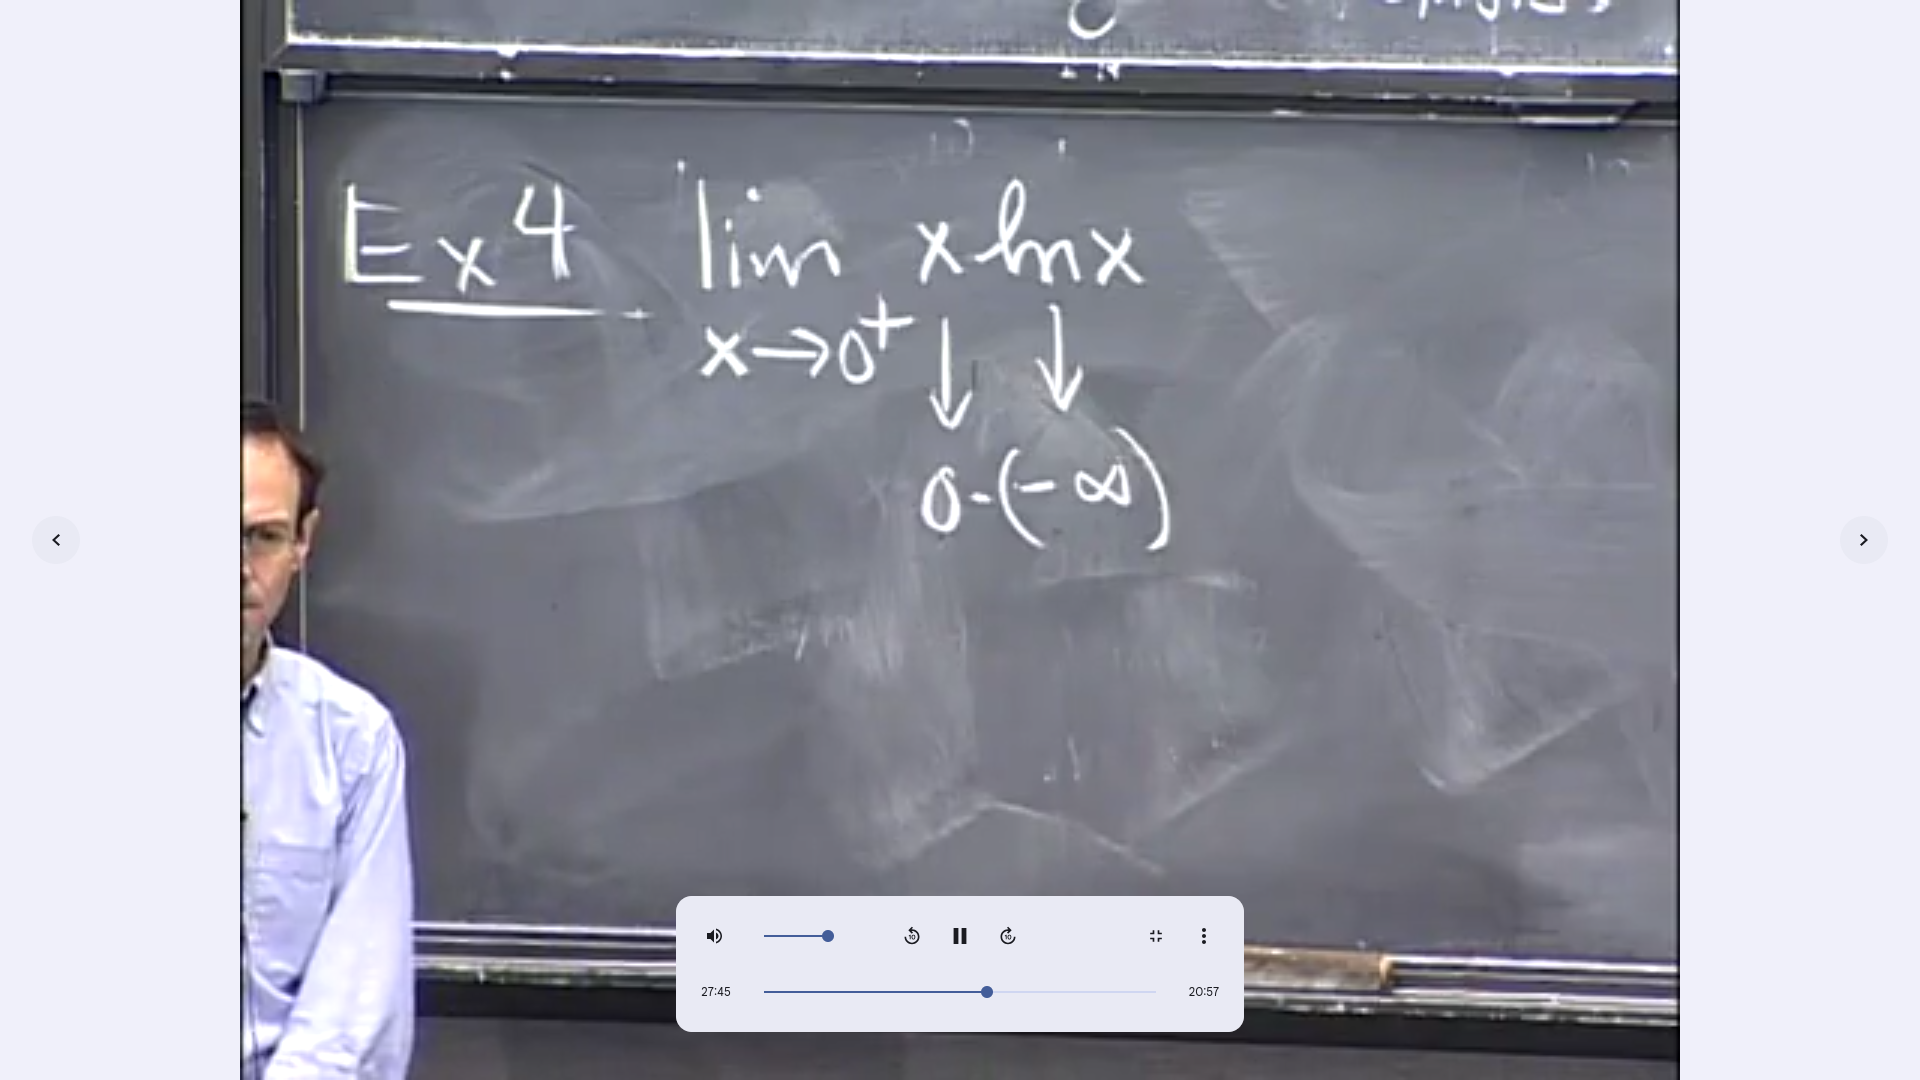 Ex 4 lim x ln x
x→0⁺
↓ ↓
0·(-∞)
10 10
27:45 20:57